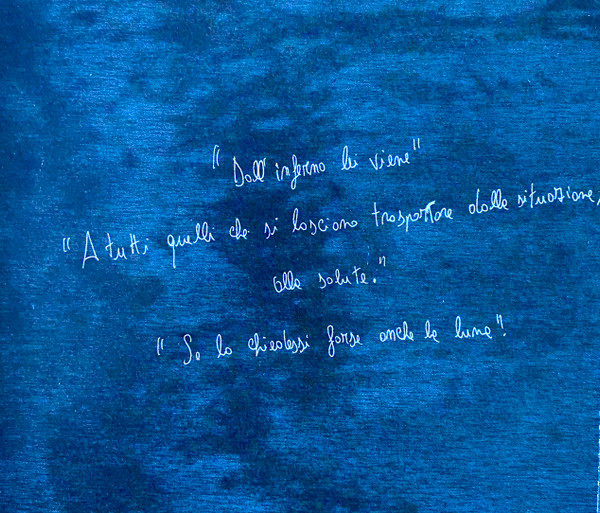 "Dall'inferno lui viene"
"A tutti quelli che si lasciano trasportare dalla situazione,
alla salute."
"Se lo chiedessi forse anche la luna"!